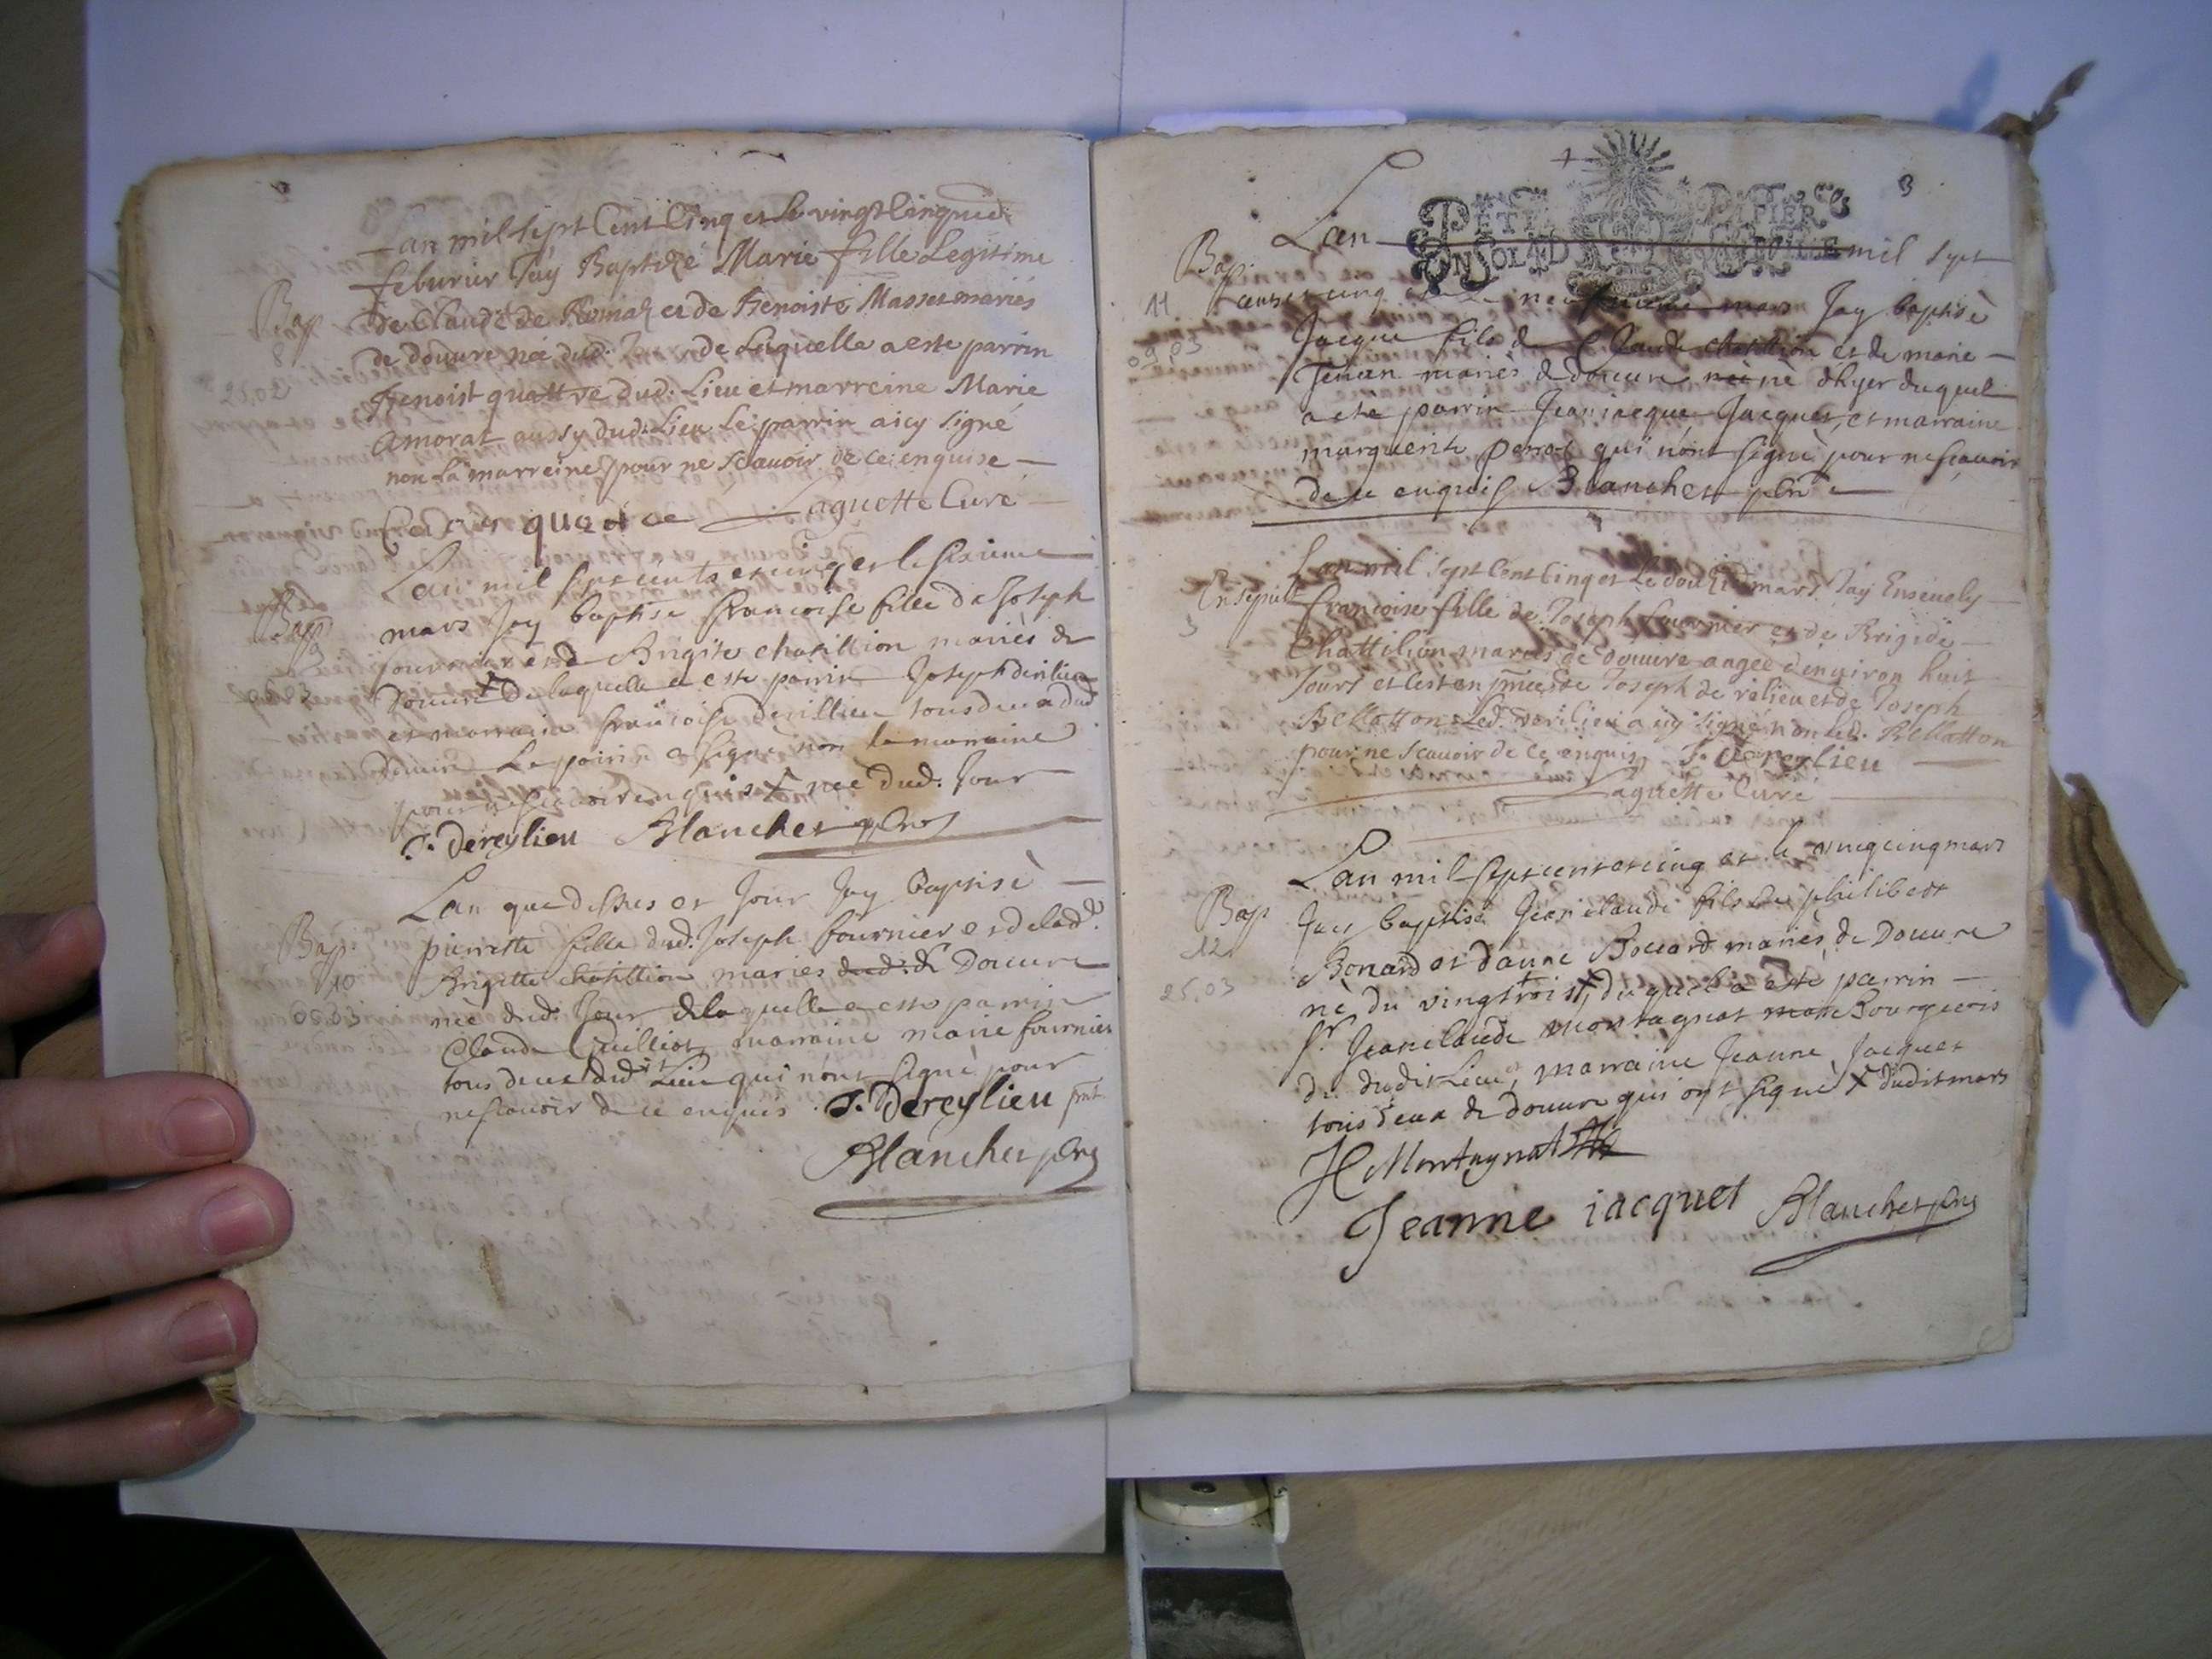 Lan mil sept Cent Cinq et le vingt Cinquie.
feburier Jay Baptizé Marie fille Legitime
de Claude de Romas et de Benoiste Masset mariés
de douure née dud. Jour de Laquelle a este parrin
Benoist quattre dud. Lieu et marreine Marie
Amorat aussy dud. Lieu Le parrin a icy signé
non La marreine pour ne scauoir de ce enquise
Laguette Curé
Bap
8
25.02
Lan mil sept cents et cinq et le sixieme
mars Jay baptisé francoise fille de Joseph
fournier et de Brigite chatillion mariès de
Douure de laquelle a este parrin Joseph derilieu
et marraine francoise derillieu tous deux dud
Douure Le parrin a signé non la marraine
pour ne scauoir enquis x née dud. Jour
J. dereylieu Blanchet
Bap
9
06.03
Lan que dessus et Jour Jay baptisè
pierrette fille dud. Joseph fournier et de lad.
Brigitte chatillion maries dud. de Douure
nèe dud. Jour de laquelle a esté parrin
Claude Guilliot marraine marie fournier
tous deux dudit Lieu qui nont signé pour
ne scauoir de ce enquis J. Dereylieu pnt.
Blanchet
Bap.
10
06.03
3
PETIT PAPIER
Lan mil sept
cents et cinq et le neufuieme mars Jay baptisè
Jacque fils de Claude chatillion et de marie
mariès de douure né d'hyer duquel
a esté parrin Jean jacque Jacquet, et marraine
marguerite perrot qui nont signé pour ne scauoir
de ce enquis Blanchet
Bap.
11
09.03
Lan mil sept Cent Cinq et Le douzie. mars Jay Enseuely
francoise fille de Joseph fournier et de Brigide
Chattilion mariés de douure aagée d'enuiron huit
Jours et cest en pnce de Joseph de relieu et de Joseph
Bellatton Led. derilieu a icy signé non led. Bellatton
pour ne scauoir de ce enquis J. dereylieu
Laguette Curé
Ensepult
3
Lan mil sept cent et cinq et le vingcinq mars
Jay baptisé Jean claude fils de philibert
Bonard et danne Boccard mariès de Douure
né du vingt trois x duquel a esté parrin
Sr. Jean claude montagnat Bourgeois
du dudit Lieu, marraine Jeanne Jacquet
tous deux de douure qui ont signé x dudit mars
Montagnat
Jeanne iacquet Blanchet
Bap
12
25.03